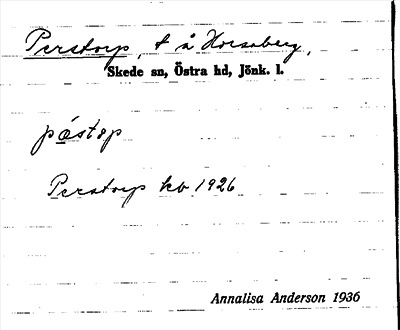 Perstorp, t å Horsaberg,
Skede sn, Östra hd, Jönk. l.
pæ̀stɔp
Perstorp kb 1926
Annalisa Anderson 1936